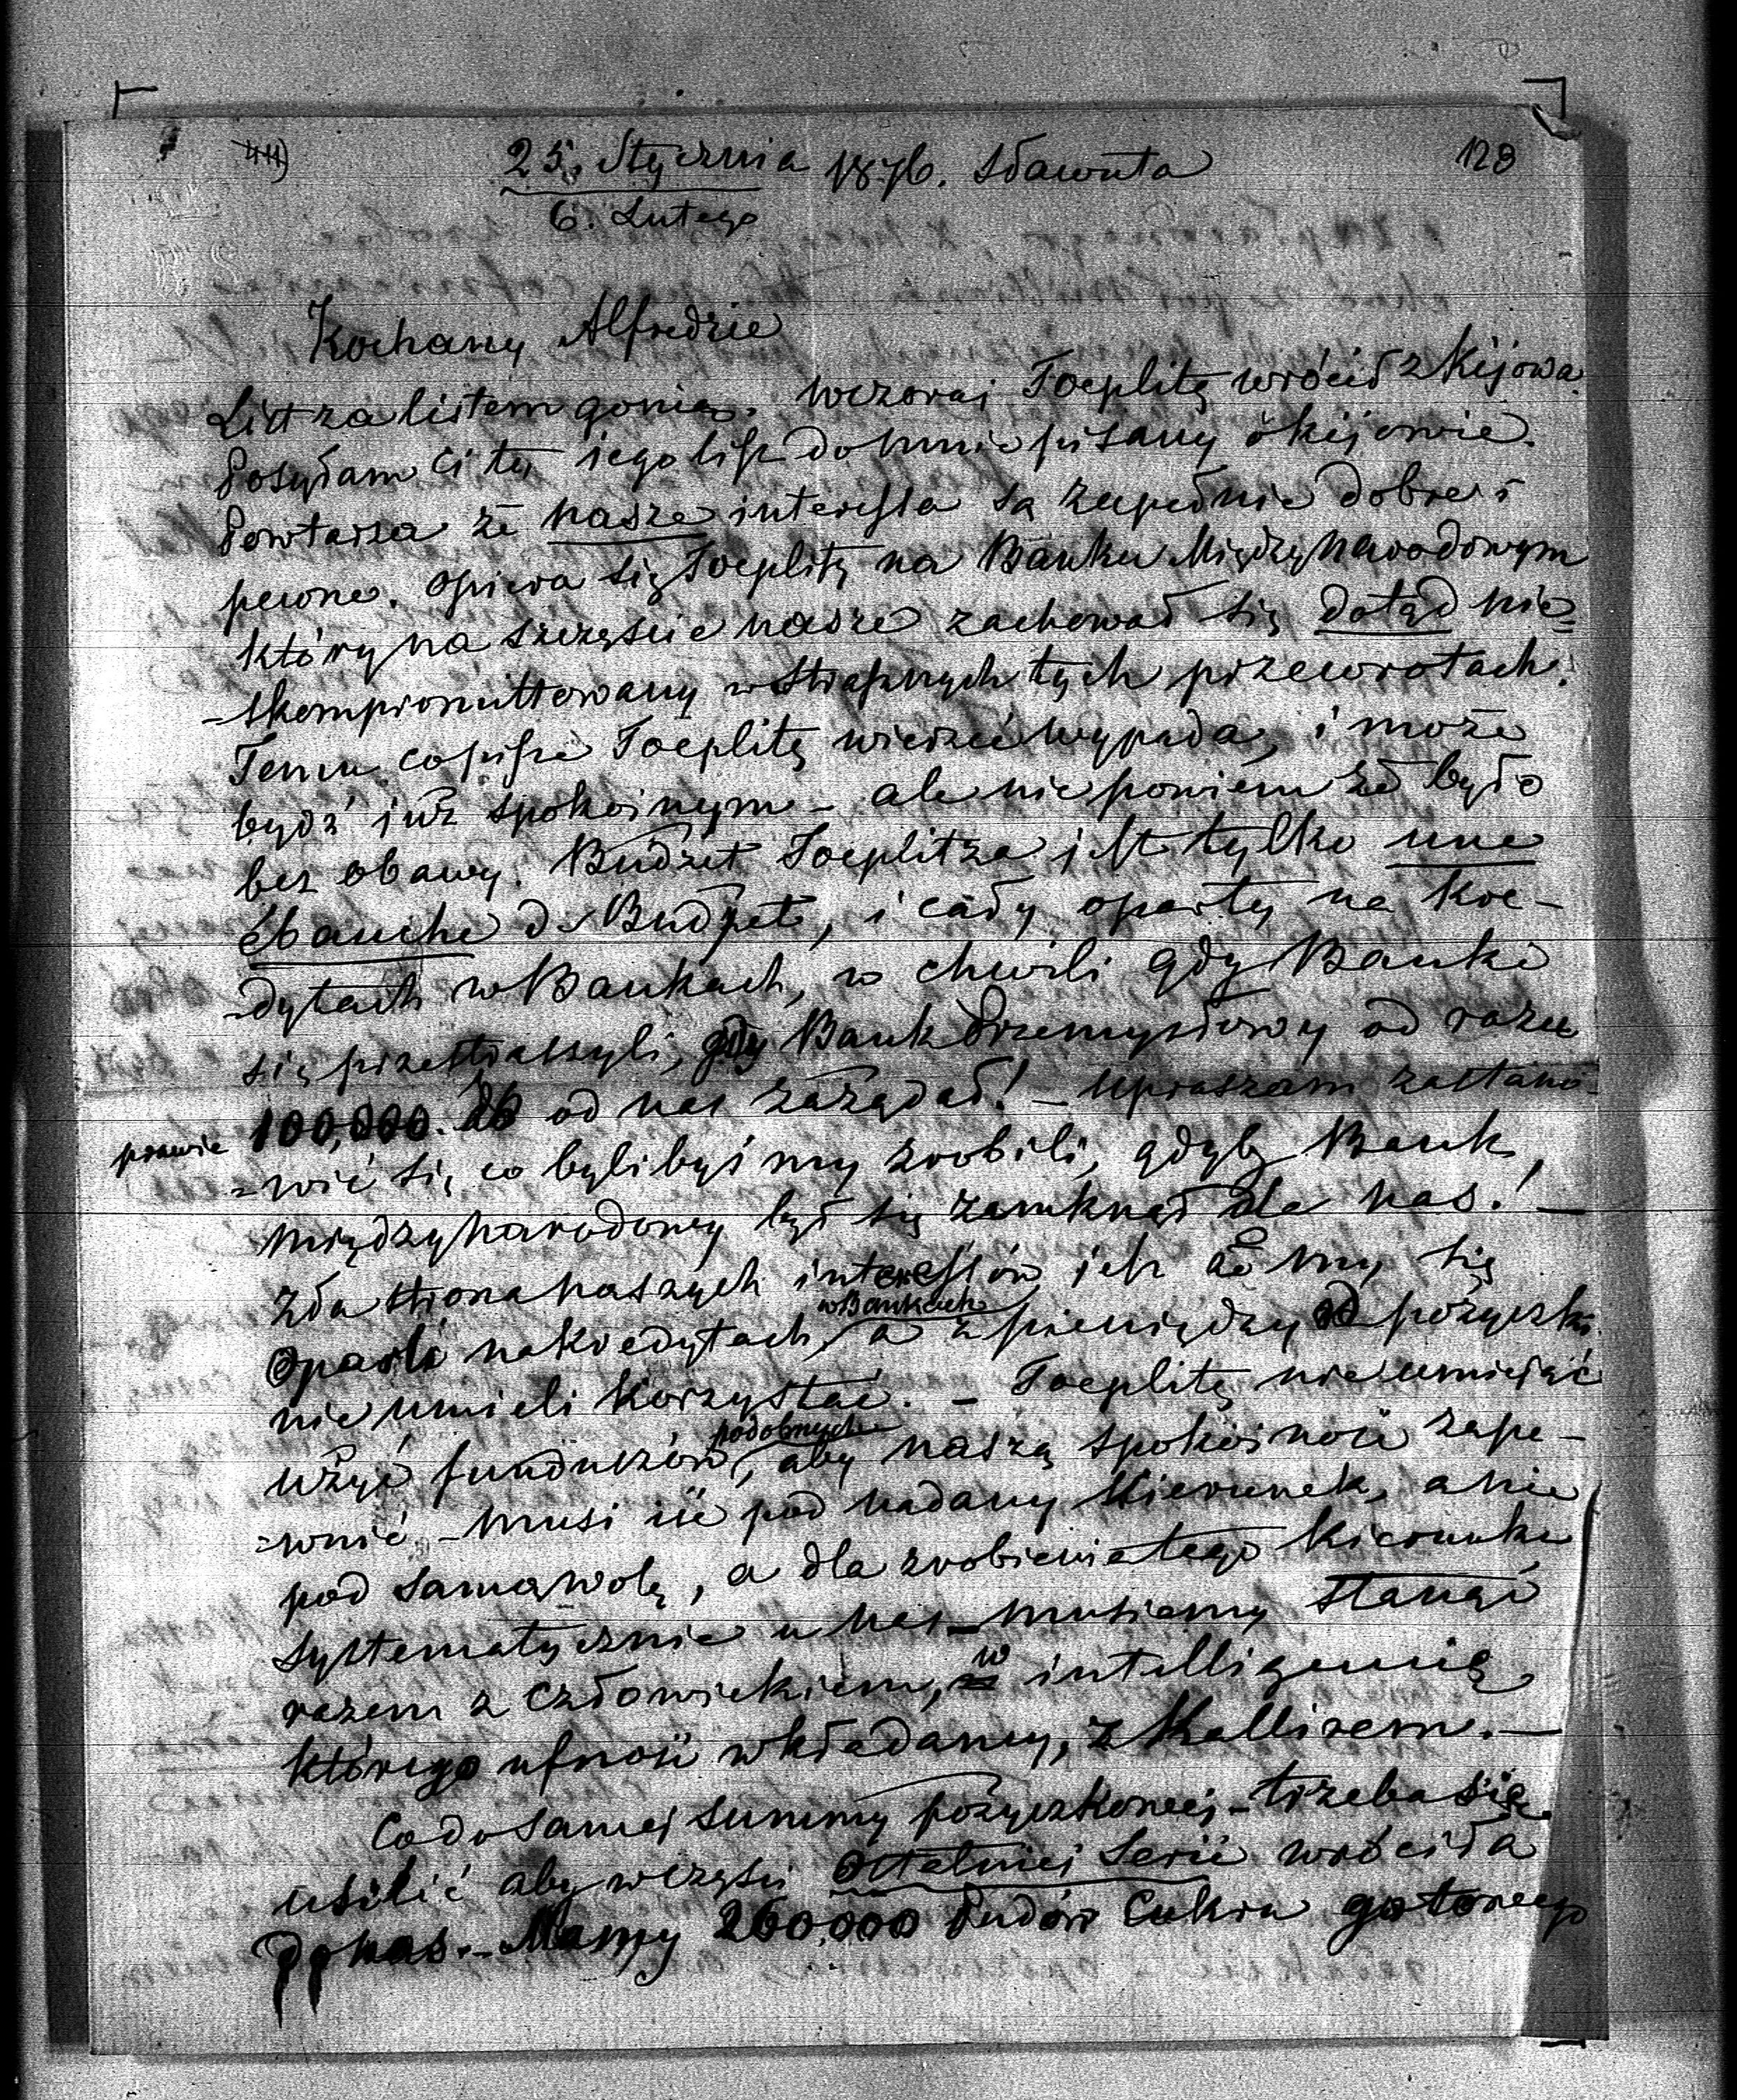 44)
128
25. Stycznia 1876. Sławuta
6. Lutego
Kochany Alfredzie
List za listem gonię. wczoraj Toeplitz wrócił z Kijowa.
Posyłam Ci tu jego list do mnie pisany o Kijowie.
Powtarza że nasze interessa są zupełnie dobre i
pewne. Opiera się Toeplitz na Banku Międzynarodowym
który na szczęście nasze zachował się dotąd nie=
-skompromittowany w strasznych tych przewrotach.
Temu co pisze Toeplitz wierzić wypada, i może
bydź już spokojnym – ale nie powiem że było
bez obawy. Budżet Toeplitza jest tylko une
ébauche de Budget, i cały oparty na kre-
-dytach w Bankach, w chwili gdy Banki
się przestraszyli, gdy Bank Przemysłowy od razu
prawie 100,000. Rb od nas zażądał! – Upraszam zastano
=wić się co bylibyśmy zrobili, gdyby Bank
międzynarodowy był się zamknął dla nas! –
Zła strona naszych interessów jest że my się
oparli na kredytach w Bankach, a z pieniędzy od pożyczki
nie umieli korzystać. – Toeplitz nie umiejąc
użyć funduszów podobnych, aby naszą spokojność zape-
=wnić – musi iść pod nadany kierunek, a nie
pod samą wolę, a dla zrobienia tego kierunku
systematycznie u nas – musiemy stanąć
razem z człowiekiem, w intelligencią
którego ufność wkładamy, z Kallirem. –
Co do samej summy pożyczkowej – trzeba się
usilić aby w części ostatniej Serii wróciła
do nas. – Mamy 260,000 Pudów Cukru gotowego